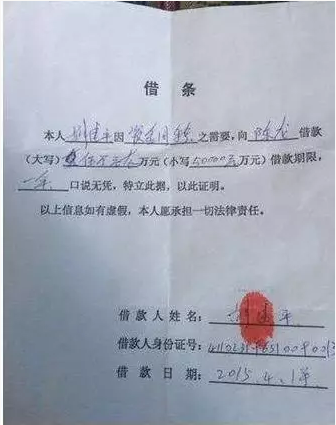 借条
本人 建平因资金周转之需要，向 陈龙 借款
（大写）伍万元 万元（小写50000元万元）借款期限，
一年 口说无凭，特立此据，以此证明。
以上信息如有虚假，本人愿承担一切法律责任。
借款人姓名： 建平
借款人身份证号：
借款日期：2015.4.1